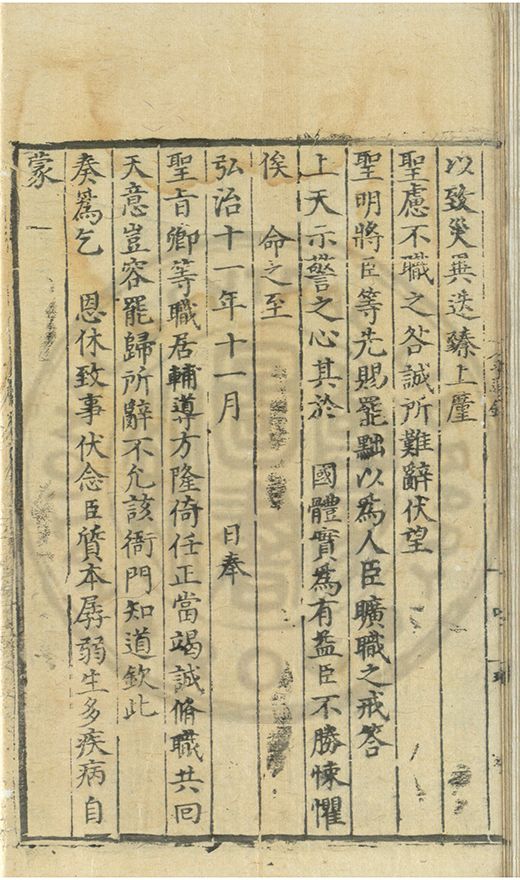 以致災異迭臻上廑
聖慮不職之咎誠所難辭伏望
聖明將臣等先賜罷黜以為人臣曠職之戒答
上天示警之心其於　國體實為有益臣不勝悚懼
俟　命之至
弘治十一年十一月　　日奉
聖旨卿等職居輔導方隆倚任正當竭誠脩職共回
天意豈容罷歸所辭不允該衙門知道欽此
奏為乞　恩休致事伏念臣質本孱弱生多疾病自
蒙